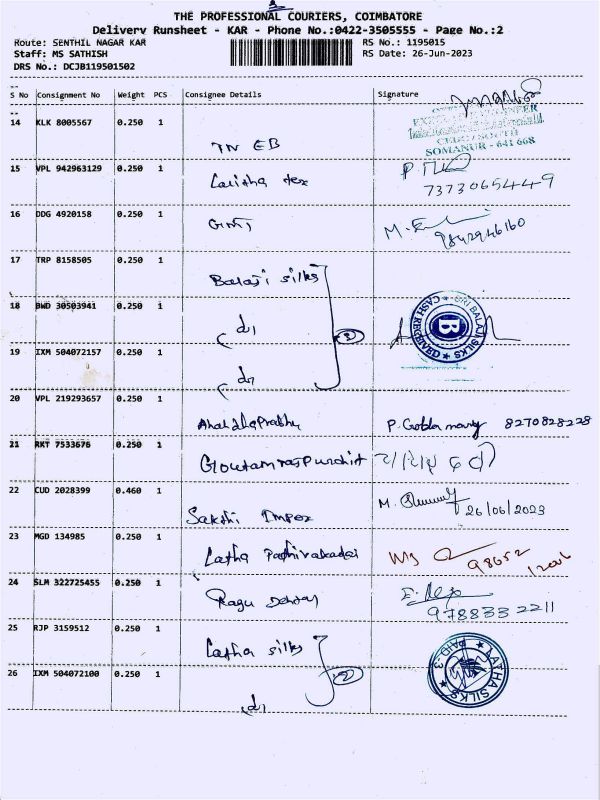 THE PROFESSIONAL COURIERS, COIMBATORE
Delivery Runsheet - KAR - Phone No.:0422-3505555 - Page No.:2
Route: SENTHIL NAGAR KAR RS No.: 1195015
Staff: MS SATHISH RS Date: 26-Jun-2023
DRS No.: DCJB119501502
S No Consignment No Weight PCS Consignee Details Signature
14 KLK 8005567 0.250 1 TN EB
ENGINEER
SOMANUR - 641 668
15 VPL 942963129 0.250 1 Lalitha tex
7373065449
16 DDG 4920158 0.250 1
9842946160
17 TRP 8158505 0.250 1 Balaji silks
18 BWD 30503941 0.250 1 do
SRI BALAJI SILKS
CASH RECEIVED
B
19 IXM 504072157 0.250 1 do
3
20 VPL 219293657 0.250 1 8270828228
21 RKT 7533676 0.250 1 Goutam raj Purohit
22 CUD 2028399 0.460 1 Sakthi Impex 26/06/2023
23 MGD 134985 0.250 1 Latha 98652
24 SLM 322725455 0.250 1 Ragu
9788332211
25 RJP 3159512 0.250 1 Latha silks
LATHA SILKS
PAID
2
26 IXM 504072100 0.250 1 do